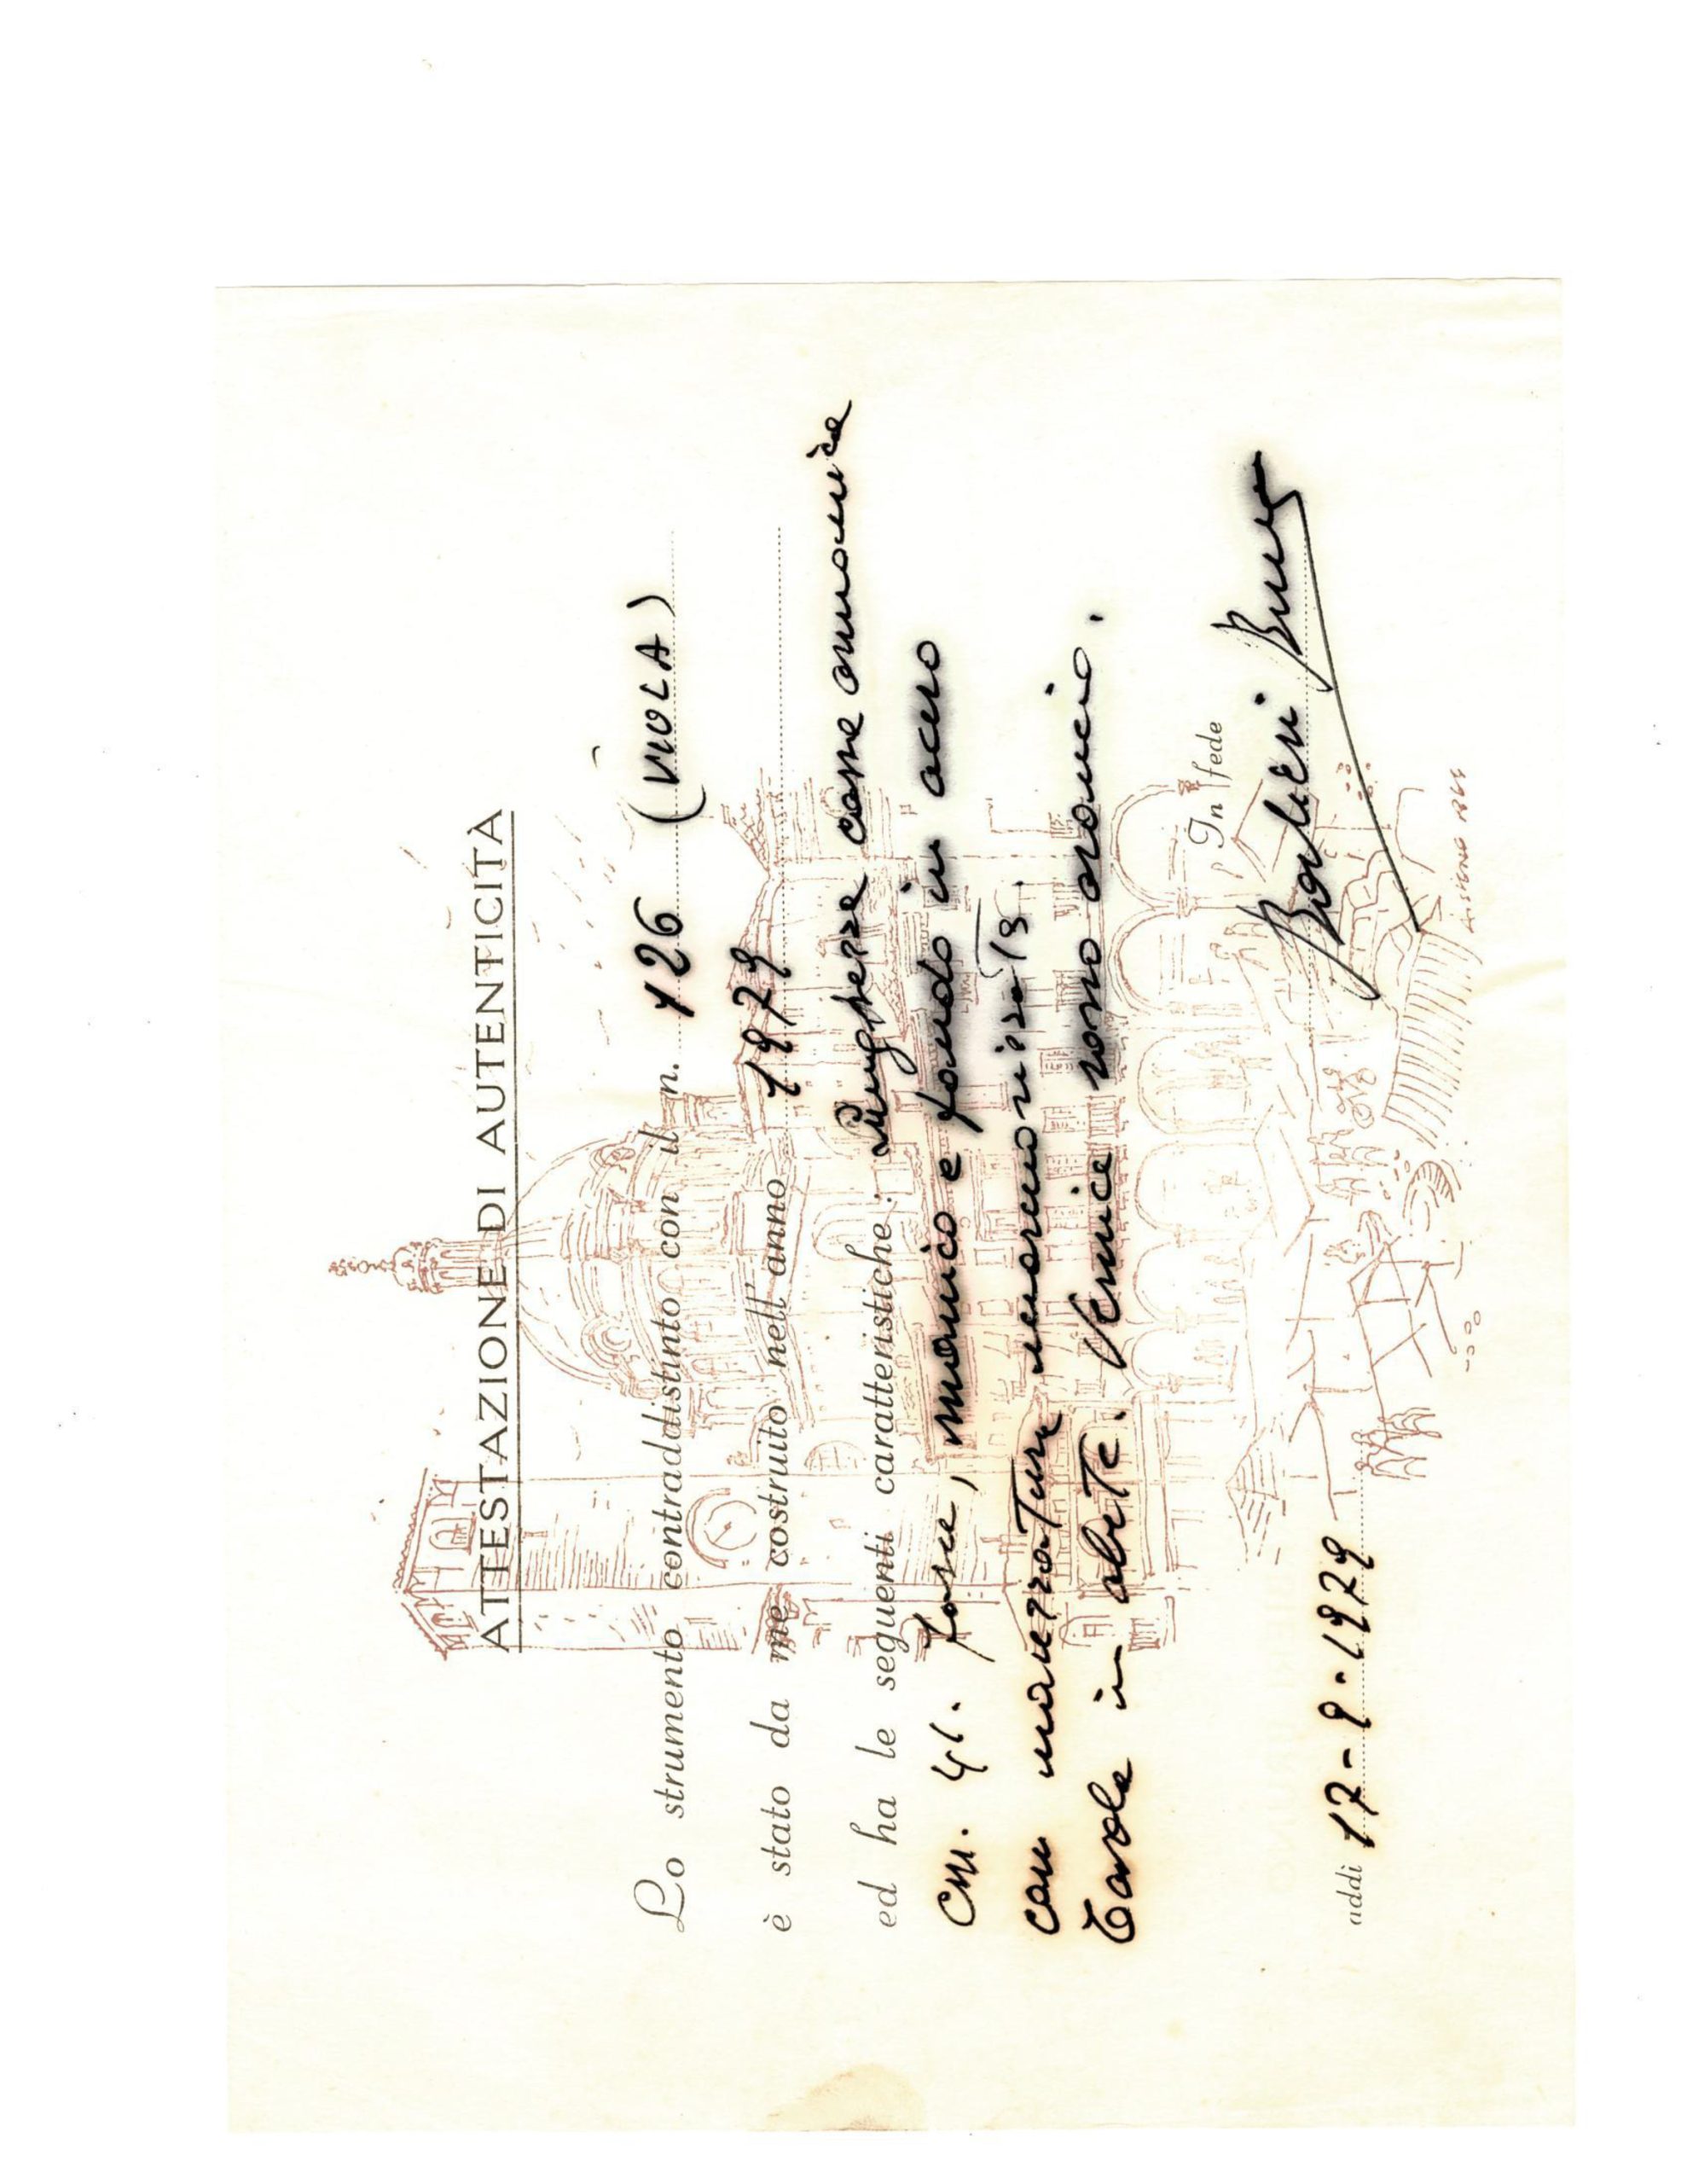 ATTESTAZIONE DI AUTENTICITÀ
Lo strumento contraddistinto con il n. 126 (VIOLA)
è stato da me costruito nell'anno 1979
ed ha le seguenti caratteristiche: Lunghezza cassa armonica
cm. 41. Fasce, manico e fondo in acero
con marezzature
Tavola in abete. Vernice rosso arancio.
In fede
addì 17-9-1979 Barbieri Bruno